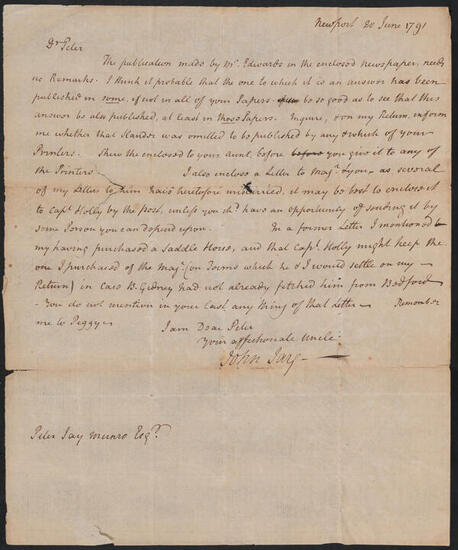 Newport 20 June 1791
Dr Peter
The publication made by Mr. Edwards in the enclosed newspaper, needs
no Remarks. I think it probable that the one to which it is an answer has been
published in some, if not in all of your Papers. be so good as to see that this
answer be also published, at least in those Papers. Inquire, & on my Return, inform
me whether that Slander was omitted to be published by any & which of your
Printers. Shew the enclosed to your aunt, before before you give it to any of
the Printers — I also enclose a Letter to Majr. — as several
of my Letters to him have heretofore miscarried, it may be best to enclose it
to Capt. Holly by the post, unless you shd. have an opportunity of sending it by
some Person you can depend upon. In a former Letter I mentioned to
my having purchased a Saddle Horse, and that Capt. Holly might keep the
one I purchased of the Majr. (on Terms which he & I would settle on my
Return) in Case B. Gedney had not already fetched him from Bedford —
You do not mention in your last any thing of that letter — Remember
me to Peggy —
I am Dear Peter
Your affectionate Uncle
John Jay —
Peter Jay Munro Esqr.